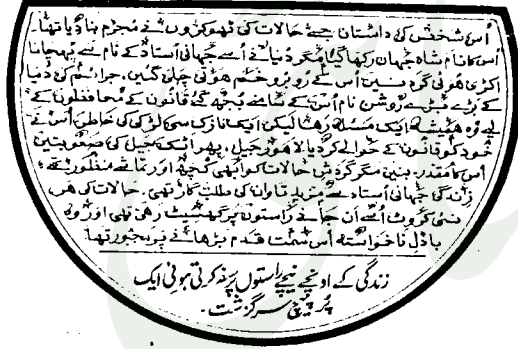 اُس شخص کی داستان جسے حالات کی ٹھوکروں نے مجرم بنا دیا تھا۔
اُس کا نام شاہ جہان رکھا گیا مگر دُنیا نے اُسے جہانی اُستاد کے نام سے پہچانا
اکڑی ہوئی گردنیں اُس کے رُوبرو خم ہوتی چلی گئیں۔ جرائم کی دُنیا
کے بڑے بڑے روشن نام اُس کے سامنے بُجھ گئے قانون کے محافظوں کے
لیے وُہ ہمیشہ ایک مسئلہ رہا لیکن ایک نازک سی لڑکی کی خاطر اُس نے
خُود کو قانون کے حوالے کر دیا لاہور جیل، پھر اٹک جیل کی صعوبتیں
اُس کا مقدر بنیں مگر گردشِ حالات کو ابھی کچھ اور تماشے منظور تھے؛
زندگی جہانی اُستاد سے مزید تاوان کی طلب گار تھی۔ حالات کی ہر
نئی کروٹ اُسے اَن جانے راستوں پر گھسیٹ رہی تھی اور وُہ
بادلِ ناخواستہ اُس سمت قدم بڑھانے پر مجبور تھا
زندگی کے اونچے نیچے راستوں پر سفر کرتی ہوئی ایک
پُر پیچ سرگزشت۔